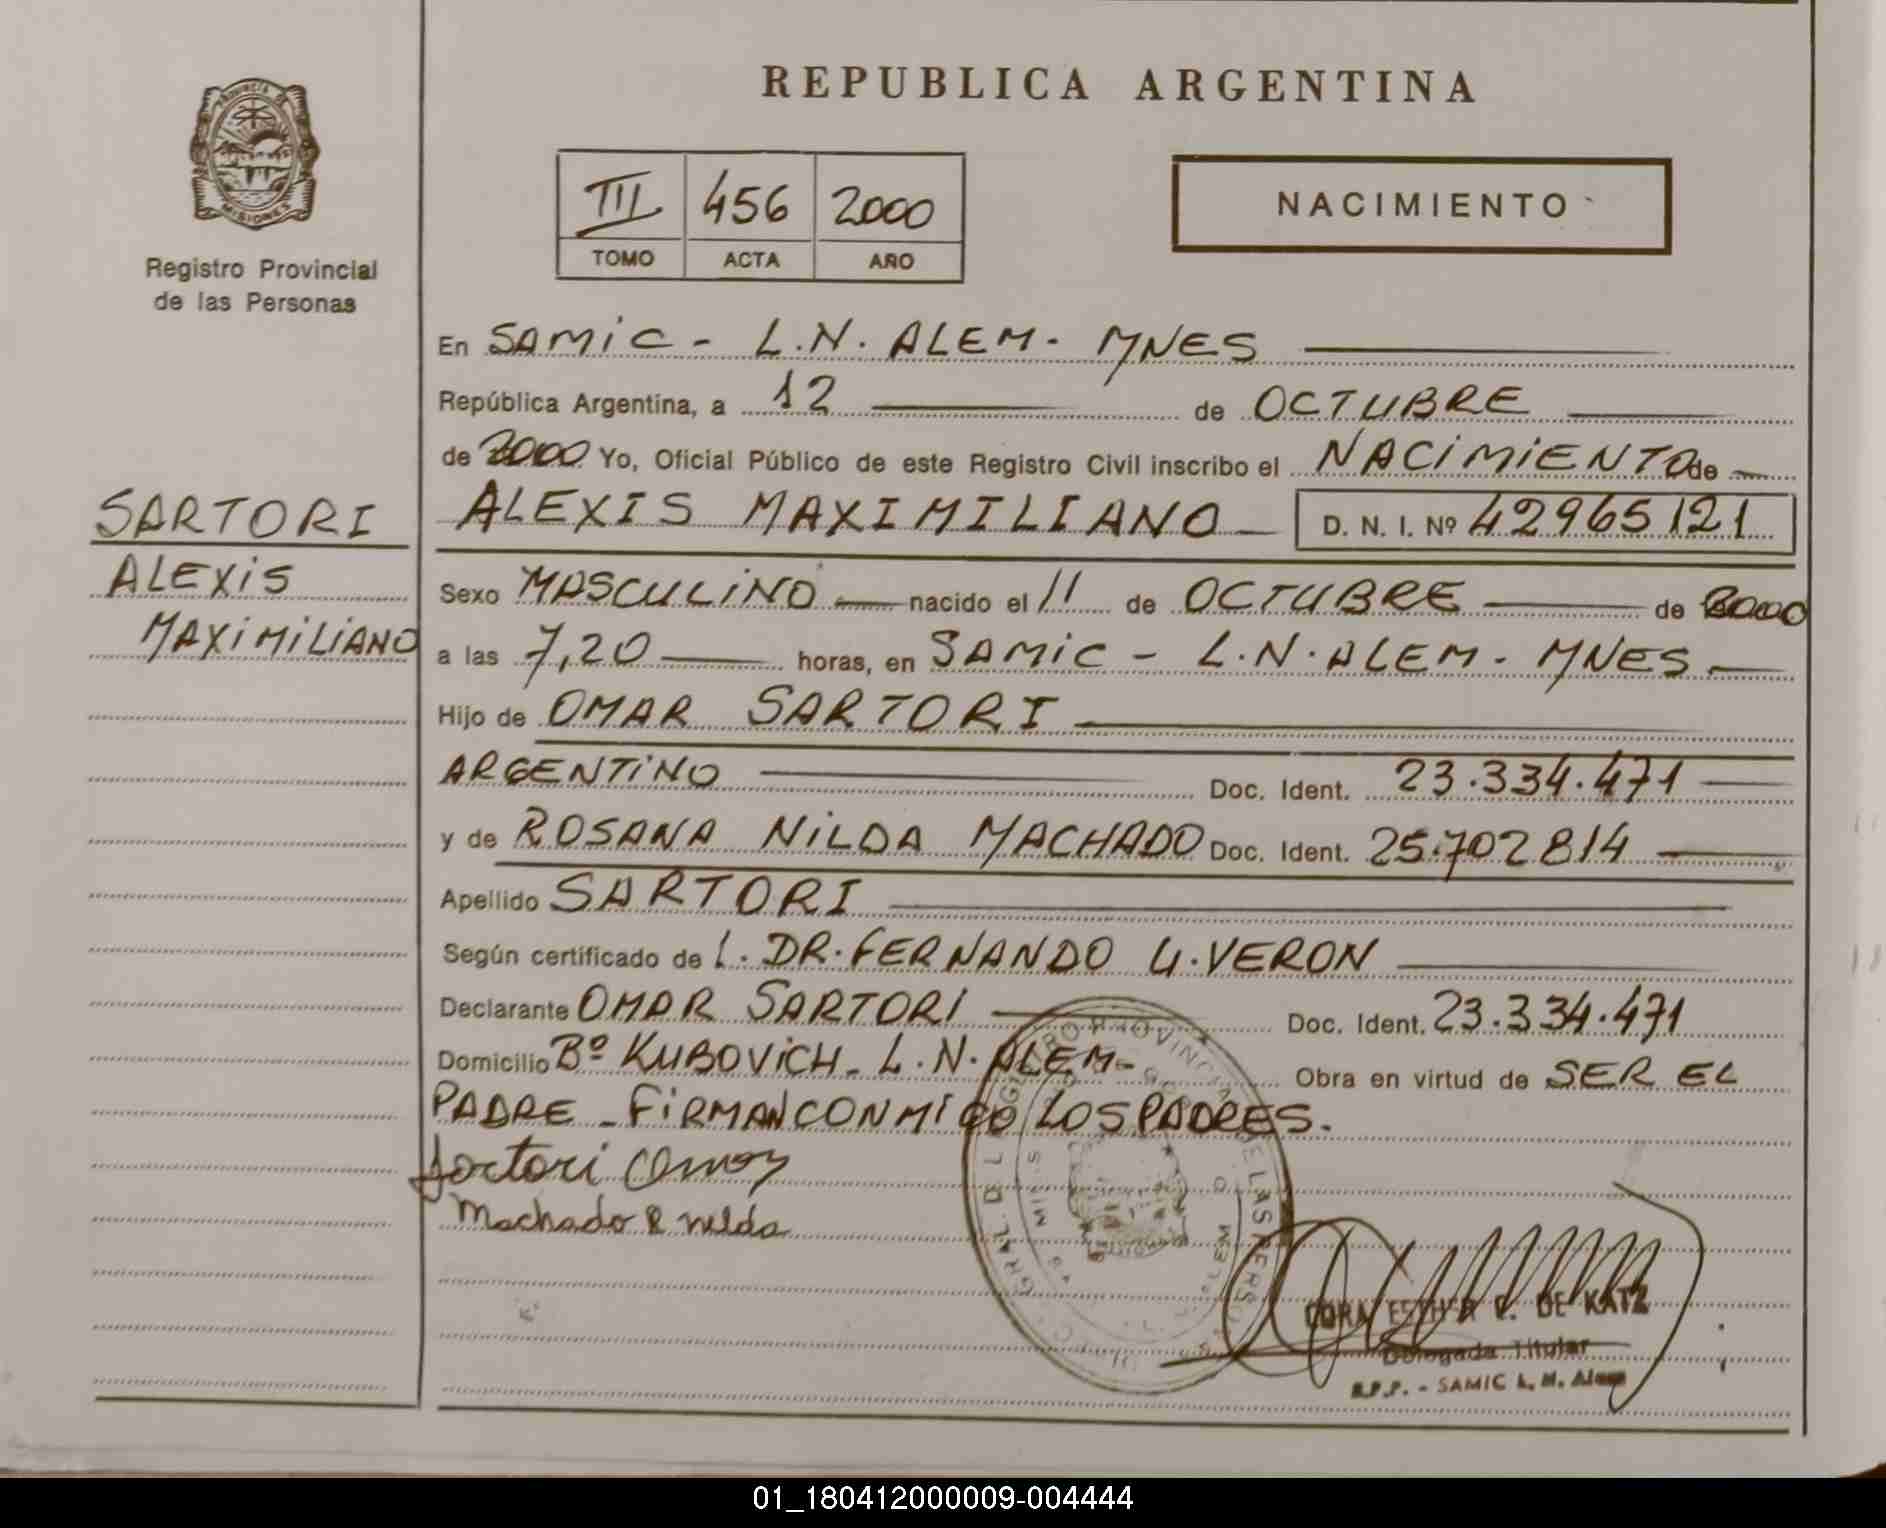 REPUBLICA ARGENTINA
PROVINCIA DE
MISIONES
Registro Provincial
de las Personas
III 456 2000
TOMO ACTA AÑO
NACIMIENTO
En SAMIC - L.N. ALEM. MNES
República Argentina, a 12 de OCTUBRE
de 2000 Yo, Oficial Público de este Registro Civil inscribo el NACIMIENTO de
SARTORI
ALEXIS
MAXIMILIANO
ALEXIS MAXIMILIANO D. N. I. Nº 42965121
Sexo MASCULINO nacido el 11 de OCTUBRE de 2000
a las 7,20 horas, en SAMIC - L.N. ALEM. MNES.
Hijo de OMAR SARTORI
ARGENTINO Doc. Ident. 23.334.471
y de ROSANA NILDA MACHADO Doc. Ident. 25.702814
Apellido SARTORI
Según certificado de L. DR. FERNANDO G. VERON
Declarante OMAR SARTORI Doc. Ident. 23.334.471
Domicilio Bº KUBOVICH - L.N. ALEM - Obra en virtud de SER EL
PADRE - FIRMAN CONMIGO LOS PADRES.
Sartori Omar
Machado R nilda
DE KATZ
Delegada Titular
R.P.P. - SAMIC L. N. Alem
01_180412000009-004444